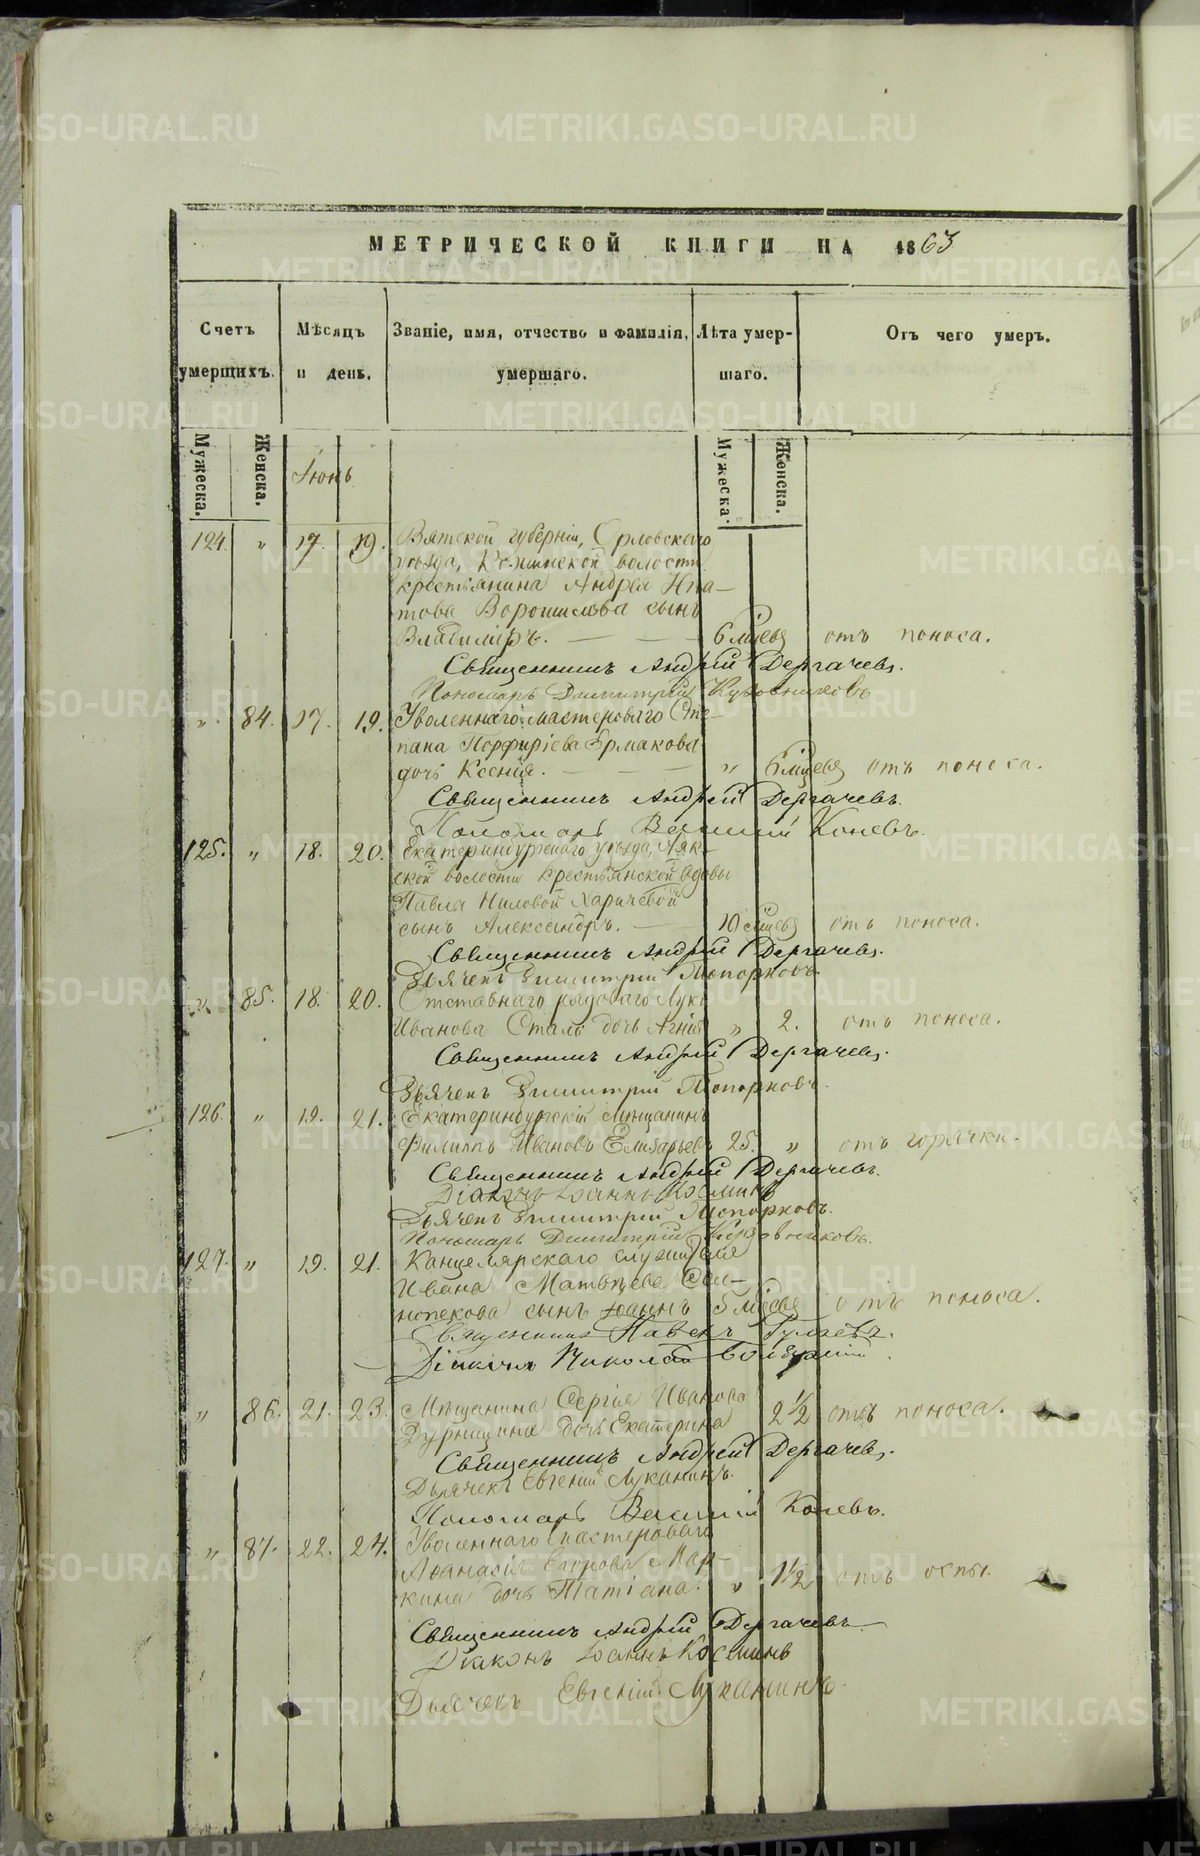 МЕТРИЧЕСКОЙ КНИГИ НА 1863
Счетъ умершихъ.
Мѣсяцъ и день.
Званіе, имя, отчество и фамилія, умершаго.
Лѣта умершаго.
Отъ чего умеръ.
Мужеска. Женска.
Мужеска. Женска.
Іюнь
124. „ 17. 19. Вятской губерніи, Орловскаго
уѣзда, волости
крестьянина Андрея Ипа-
това Ворошилова сынъ
Владиміръ. — — 6 мѣсяцѣ отъ поноса.
Священникъ Андрей Дергачевъ.
Пономарь Димитрій
„ 84. 17. 19. Уволеннаго мастероваго Сте-
пана Порфиріева Ермакова
дочь Ксенія. — — — „ 6 мѣсяцѣ отъ поноса.
Священникъ Андрей Дергачевъ.
Пономарь Василій Коневъ.
125. „ 18. 20. Екатеринбургскаго уѣзда,
ской волости крестьянской вдовы
Павлы Ниловой Харичевой
сынъ Александръ. — 10 отъ поноса.
Священникъ Андрей Дергачевъ.
Дьячекъ Димитрій Топорковъ.
„ 85. 18. 20. Отставнаго рядоваго Луки
Иванова дочь Агнія „ 2. отъ поноса.
Священникъ Андрей Дергачевъ.
Дьячекъ Димитрій Топорковъ.
126. „ 19. 21. Екатеринбургскій мѣщанинъ
Филиппъ Ивановъ Елизарьевъ 25. „ отъ горячки.
Священникъ Андрей Дергачевъ.
Діаконъ Іоаннъ Косминъ
Дьячекъ Димитрій Топорковъ.
Пономарь Димитрій
127. „ 19. 21. Канцелярскаго служителя
Ивана Матвѣева
сынъ Іоаннъ 5 мѣсяцѣ отъ поноса.
Священникъ Павелъ
Діаконъ Николай
„ 86. 21. 23. Мѣщанина Сергія Иванова
Дурницина дочь Екатерина 2½ отъ поноса.
Священникъ Андрей Дергачевъ.
Дьячекъ Евгеній Луканинъ.
Пономарь Василій Коневъ.
„ 87. 22. 24. Уволеннаго мастероваго
Аѳанасія Егорова Мар-
кина дочь Татіана. „ 1½ отъ оспы.
Священникъ Андрей Дергачевъ
Діаконъ Іоаннъ Косминъ
Дьячекъ Евгеній Луканинъ.
METRIKI.GASO-URAL.RU